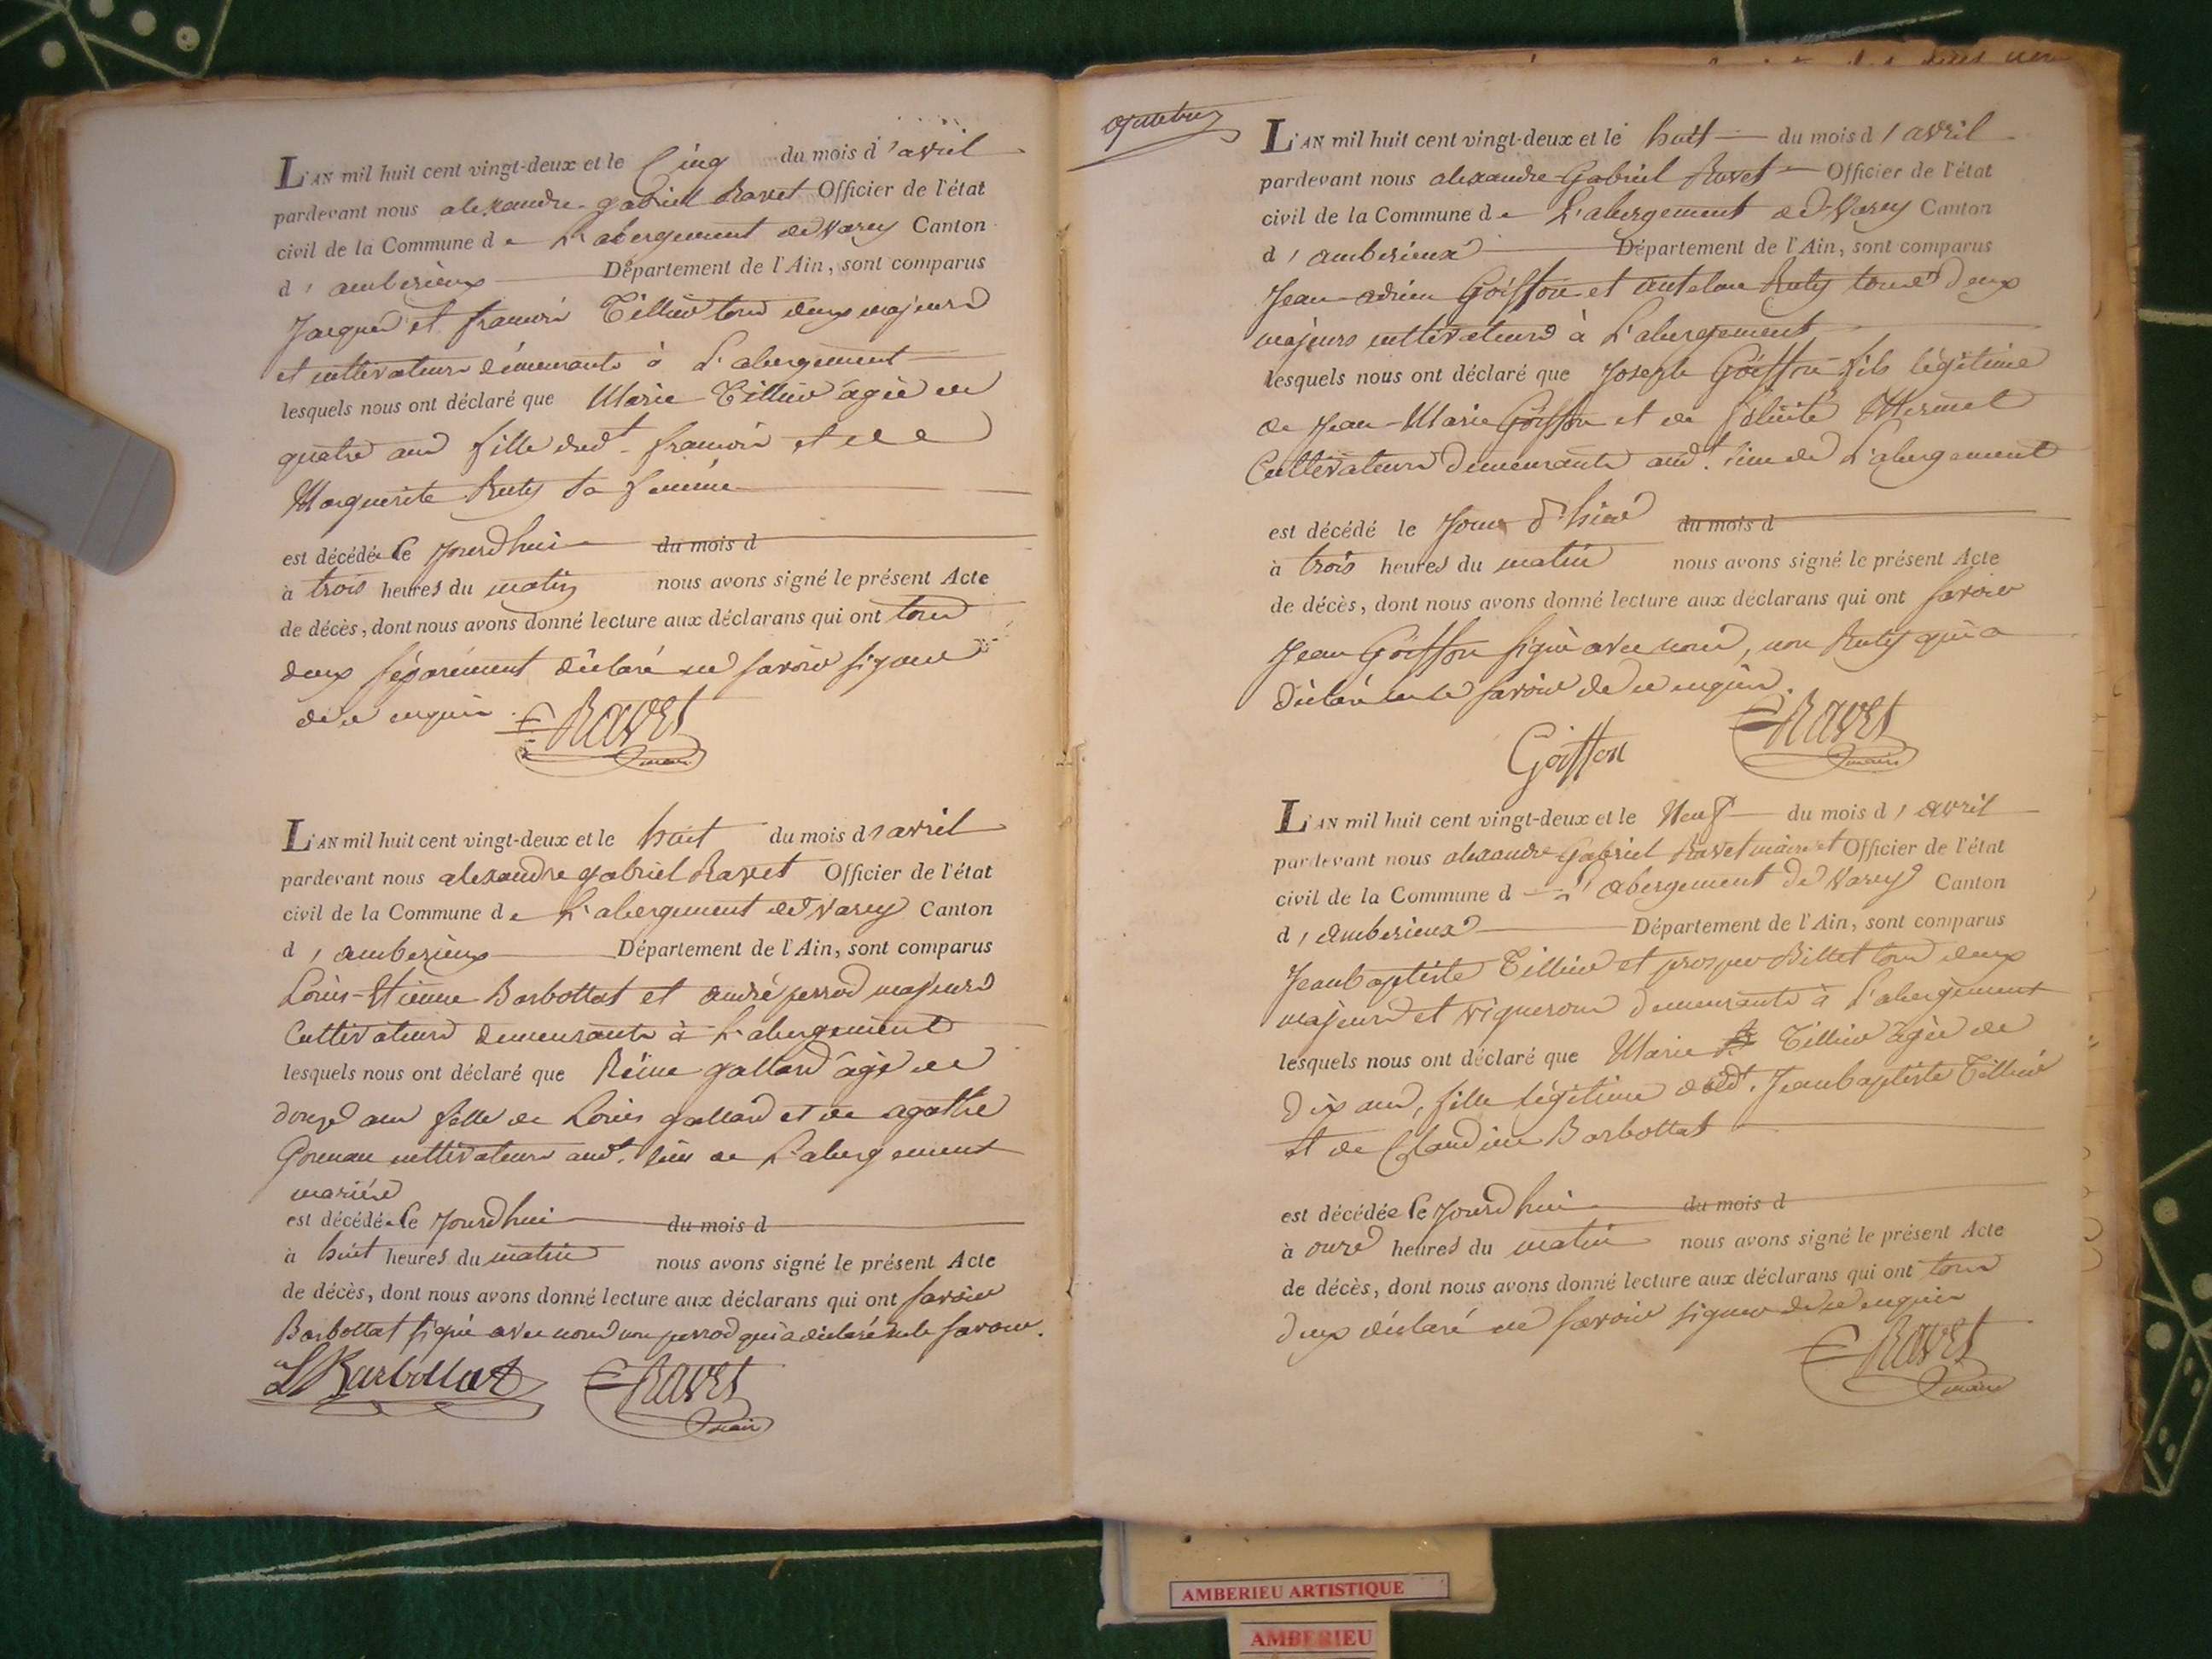 L'AN mil huit cent vingt-deux et le Cinq du mois d'avril
pardevant nous alexandre gabriel Ravet Officier de l'état
civil de la Commune de L'abergement de Varey Canton
d'amberieux Département de l'Ain, sont comparus
Jacques et francois Tillier tous deux majeurs
et cultivateurs demeurants à L'abergement
lesquels nous ont déclaré que Marie Tillier âgée de
quatre ans fille dudt francois et de
Marguerite Ruty sa femme
est décédée le jourdhui du mois d
à trois heures du matin nous avons signé le présent Acte
de décès, dont nous avons donné lecture aux déclarans qui ont tous
deux séparément déclaré ne savoir signer
de ce enquis
Ravet
maire
L'AN mil huit cent vingt-deux et le huit du mois d'avril
pardevant nous alexandre gabriel Ravet Officier de l'état
civil de la Commune de L'abergement de Varey Canton
d'amberieux Département de l'Ain, sont comparus
Louis-Etienne Barbottat et andré perrod majeurs
Cultivateurs demeurants à L'abergement
lesquels nous ont déclaré que Reine galland âgé de
douze ans fille de Louis galland et de agathe
cultivateurs audt. lieu de L'abergement
mariés
est décédée le jourdhui du mois d
à huit heures du matin nous avons signé le présent Acte
de décès, dont nous avons donné lecture aux déclarans qui ont savoir
Barbottat signé avec nous non perrod qui a déclaré ne le savoir.
L Barbottat Ravet
maire
L'AN mil huit cent vingt-deux et le huit du mois d'avril
pardevant nous alexandre Gabriel Ravet Officier de l'état
civil de la Commune de L'abergement de Varey Canton
d'amberieux Département de l'Ain, sont comparus
Jean-adrien Goiffon et antelme Ruty tous deux
majeurs cultivateurs à L'abergement
lesquels nous ont déclaré que Joseph Goiffon fils légitime
de Jean-Marie Goiffon et de félicité Mermet
Cultivateurs demeurants audt. lieu de L'abergement
est décédé le Jour d'hier du mois d
à trois heures du matin nous avons signé le présent Acte
de décès, dont nous avons donné lecture aux déclarans qui ont savoir
Jean Goiffon signé avec nous, non Ruty qui a
déclaré ne le savoir de ce enquis.
Goiffon Ravet
maire
L'AN mil huit cent vingt-deux et le Neuf du mois d'avril
pardevant nous alexandre Gabriel Ravet maire et Officier de l'état
civil de la Commune d L'abergement de Varey Canton
d'amberieux Département de l'Ain, sont comparus
Jeanbaptiste Tillier et prosper Billet tous deux
majeurs et vignerons demeurants à L'abergement
lesquels nous ont déclaré que Marie Tillier âgée de
dix ans, fille légitime dudt. Jeanbaptiste Tillier
et de Claudine Barbottat
est décédée le jourdhui du mois d
à onze heures du matin nous avons signé le présent Acte
de décès, dont nous avons donné lecture aux déclarans qui ont tous
deux déclaré ne savoir signer de ce enquis
Ravet
maire
AMBERIEU ARTISTIQUE
AMBERIEU